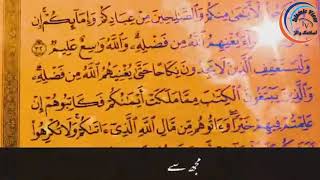 ٱلْأَيَٰمَىٰ مِنكُمْ وَٱلصَّٰلِحِينَ مِنْ عِبَادِكُمْ وَإِمَآئِكُمْ إِن
رَآءَ يُغْنِهِمُ ٱللَّهُ مِن فَضْلِهِۦ وَٱللَّهُ وَٰسِعٌ عَلِيمٌ ٣٢
وَلْيَسْتَعْفِفِ ٱلَّذِينَ لَا يَجِدُونَ نِكَاحًا حَتَّىٰ يُغْنِيَهُمُ ٱللَّهُ مِن فَضْلِهِۦ
وَٱلَّذِينَ يَبْتَغُونَ ٱلْكِتَٰبَ مِمَّا مَلَكَتْ أَيْمَٰنُكُمْ فَكَاتِبُوهُمْ إِنْ
عَلِمْتُمْ فِيهِمْ خَيْرًا وَءَاتُوهُم مِّن مَّالِ ٱللَّهِ ٱلَّذِىٓ ءَاتَىٰكُمْ وَلَا تُكْرِهُوا۟
مجھ سے